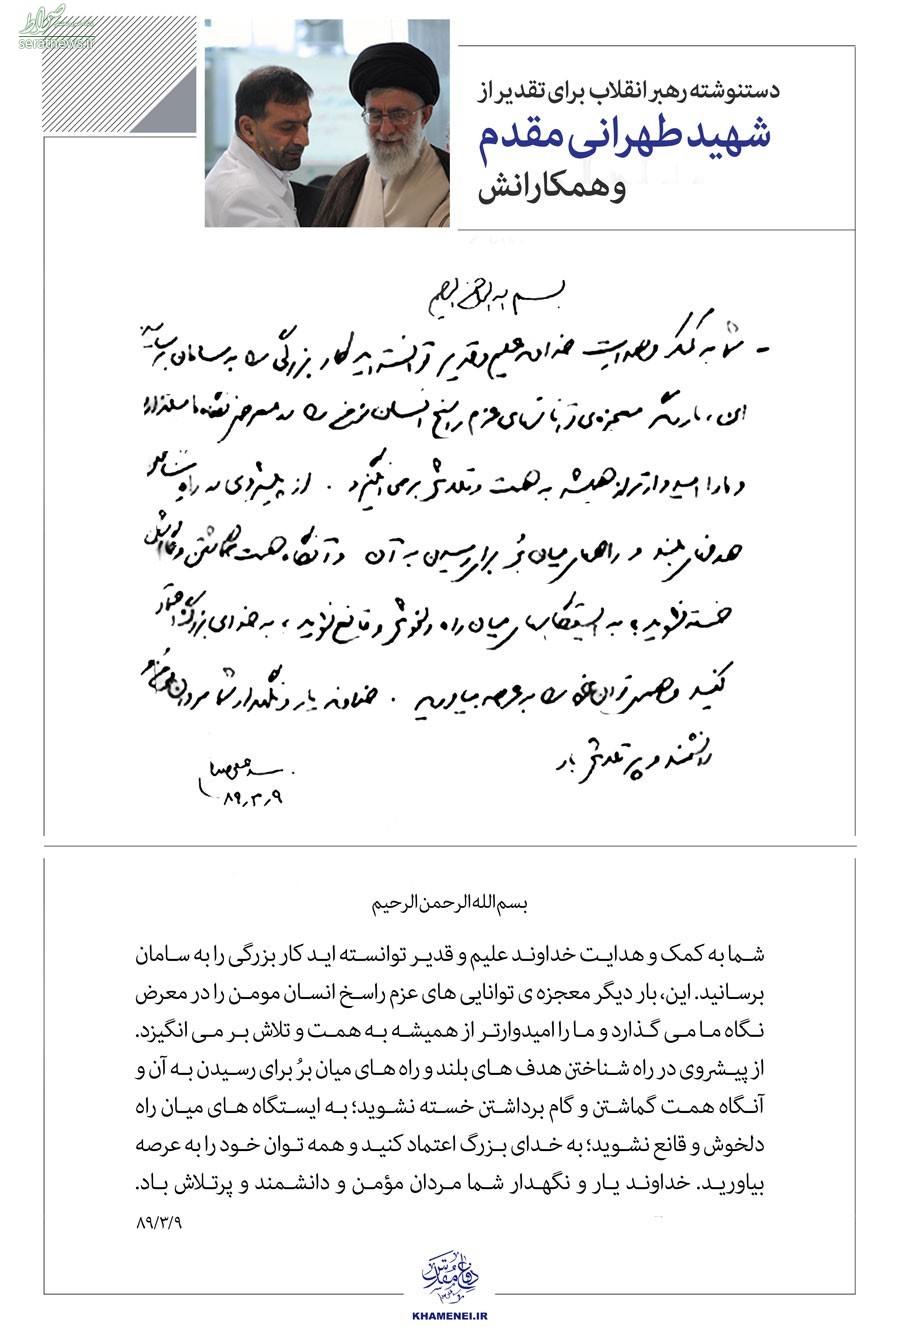 صراط
seratnews.ir
دستنوشته رهبر انقلاب برای تقدیر از
شهید طهرانی مقدم
و همکارانش
بسم الله الرحمن الرحیم
- شما به کمک و هدایت خداوند علیم و قدیر توانسته اید کار بزرگی را به سامان برسانید
این، بار دیگر معجزه‌ی توانائیهای عزم راسخ انسان مومن را در معرض نگاه ما میگذارد
و ما را امیدوارتر از همیشه به همت و تلاش بر می انگیزد . از پیشروی در راه شناختن
هدفهای بلند و راههای میان بُر برای رسیدن به آن و آنگاه همت گماشتن و گام برداشتن
خسته نشوید؛ به ایستگاههای میان راه دلخوش و قانع نشوید، به خدای بزرگ اعتماد
کنید و همه‌ی توان خود را به عرصه بیاورید . خداوند یار و نگهدار شما مردان مؤمن و
دانشمند و پر تلاش باد
سید علی خامنه‌ای
۸۹٫۳٫۹
بسم الله الرحمن الرحیم
شما به کمک و هدایت خداوند علیم و قدیر توانسته اید کار بزرگی را به سامان
برسانید. این، بار دیگر معجزه ی توانایی های عزم راسخ انسان مومن را در معرض
نگاه ما می گذارد و ما را امیدوارتر از همیشه به همت و تلاش بر می انگیزد.
از پیشروی در راه شناختن هدف های بلند و راه های میان برُ برای رسیدن به آن و
آنگاه همت گماشتن و گام برداشتن خسته نشوید؛ به ایستگاه های میان راه
دلخوش و قانع نشوید؛ به خدای بزرگ اعتماد کنید و همه توان خود را به عرصه
بیاورید. خداوند یار و نگهدار شما مردان مؤمن و دانشمند و پرتلاش باد.
۸۹/۳/۹
دفاع مقدس
KHAMENEI.IR